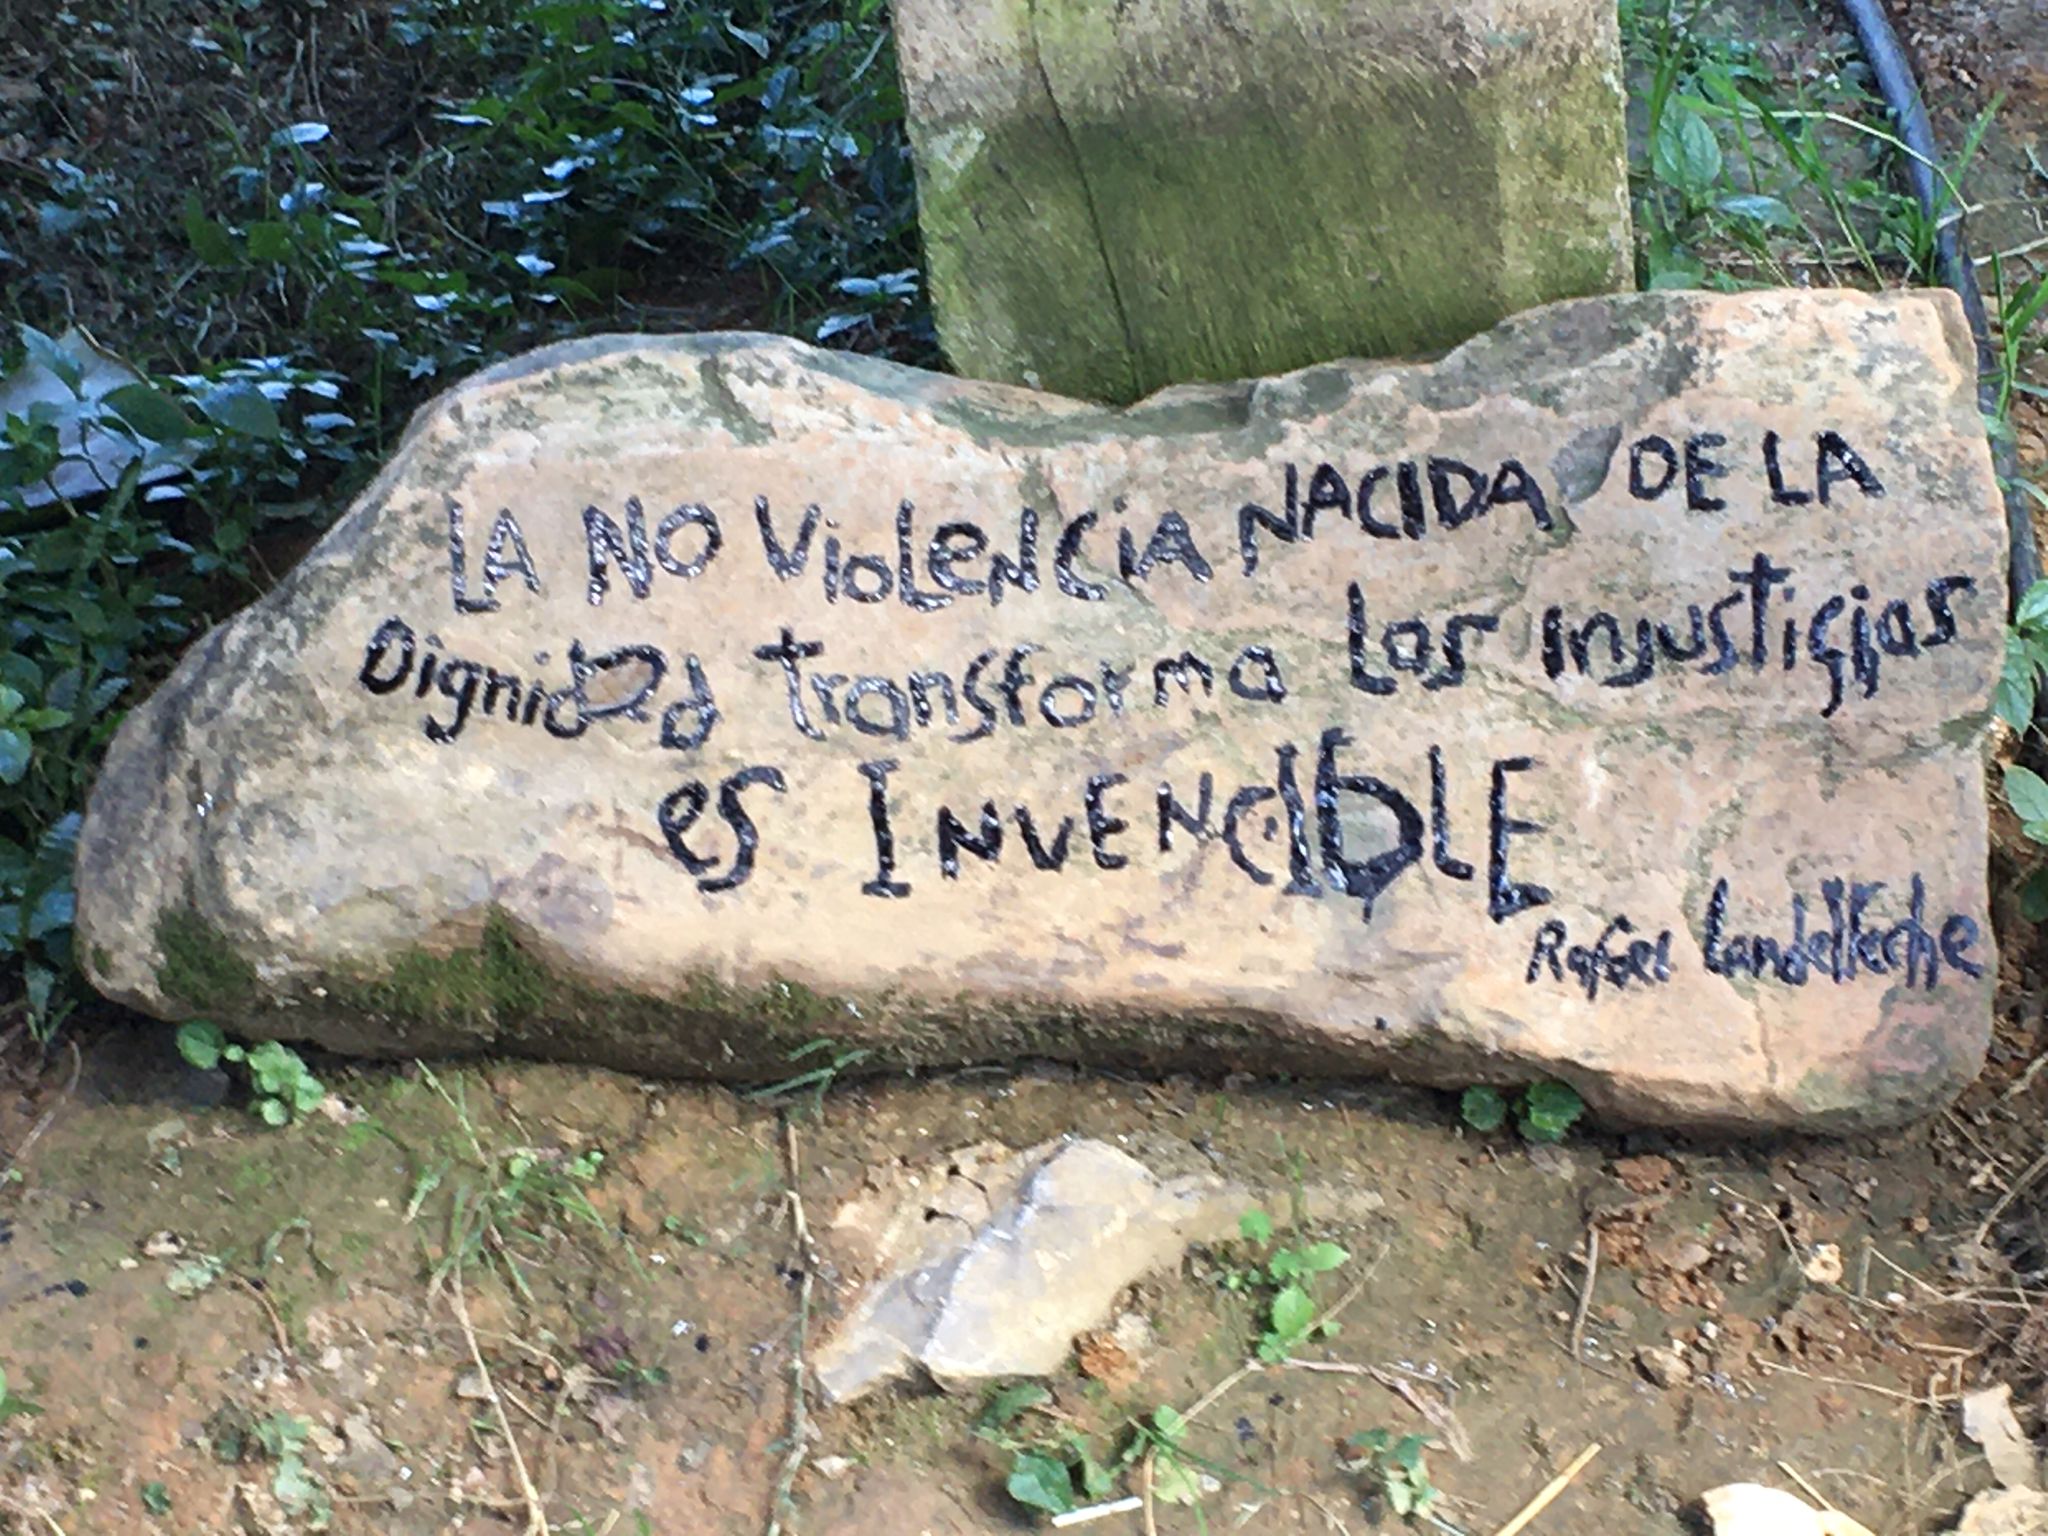 LA NO VioLeNCiA NACIDA DE LA
Dignidad transforma Las injusticias
es INVENCIBLE
Rafael Landerreche